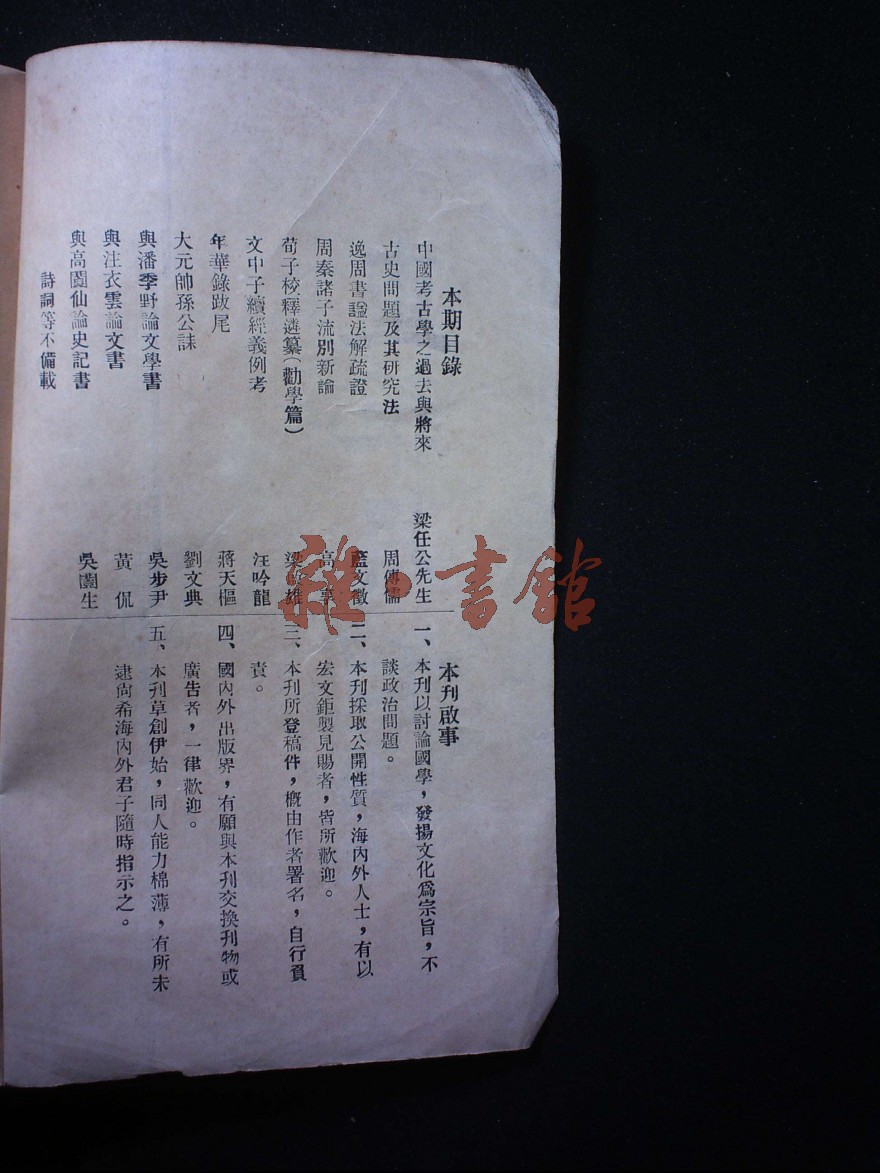 本期目錄
中國考古學之過去與將來 梁任公先生
古史問題及其研究法 周傳儒
逸周書謚法解疏證 藍文徵
周秦諸子流別新論 高 亨
荀子校釋遴纂（勸學篇） 梁啟雄
文中子續經義例考 汪吟龍
年華錄跋尾 蔣天樞
大元帥孫公誄 劉文典
與潘季野論文學書 吳步尹
與注衣雲論文書 黃 侃
與高閬仙論史記書 吳闓生
詩詞等不備載
本刋啟事
一、本刋以討論國學，發揚文化爲宗旨，不
談政治問題。
二、本刋採取公開性質，海內外人士，有以
宏文鉅製見賜者，皆所歡迎。
三、本刋所登稿件，槪由作者署名，自行負
責。
四、國內外出版界，有願與本刋交換刋物或
廣告者，一律歡迎。
五、本刋草創伊始，同人能力棉薄，有所未
逮尙希海內外君子隨時指示之。
雜·書館